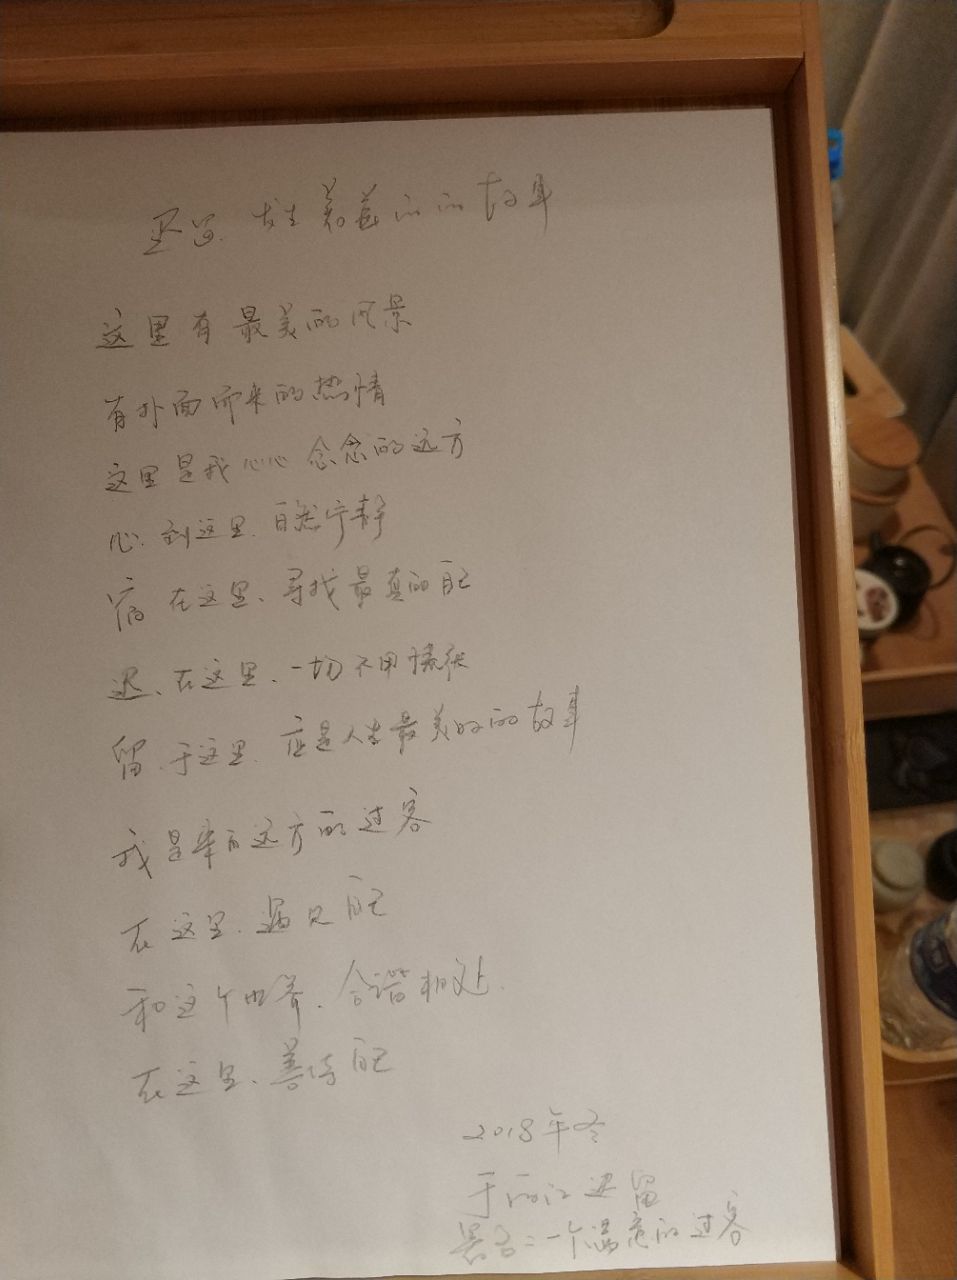 发生着 的故事
这里有最美的风景
有扑面而来的热情
这里是我心心念念的远方
心.到这里.自然宁静
在这里、寻找最真的自己
迟、在这里、一切不用慌张
留.于这里.应是人生最美的的故事
我是来自远方的过客
在这里.遇见自己
和这个世界.合谐相处.
在这里、善待自己
2018年冬
于丽江迟留
署名:一个满意的过客